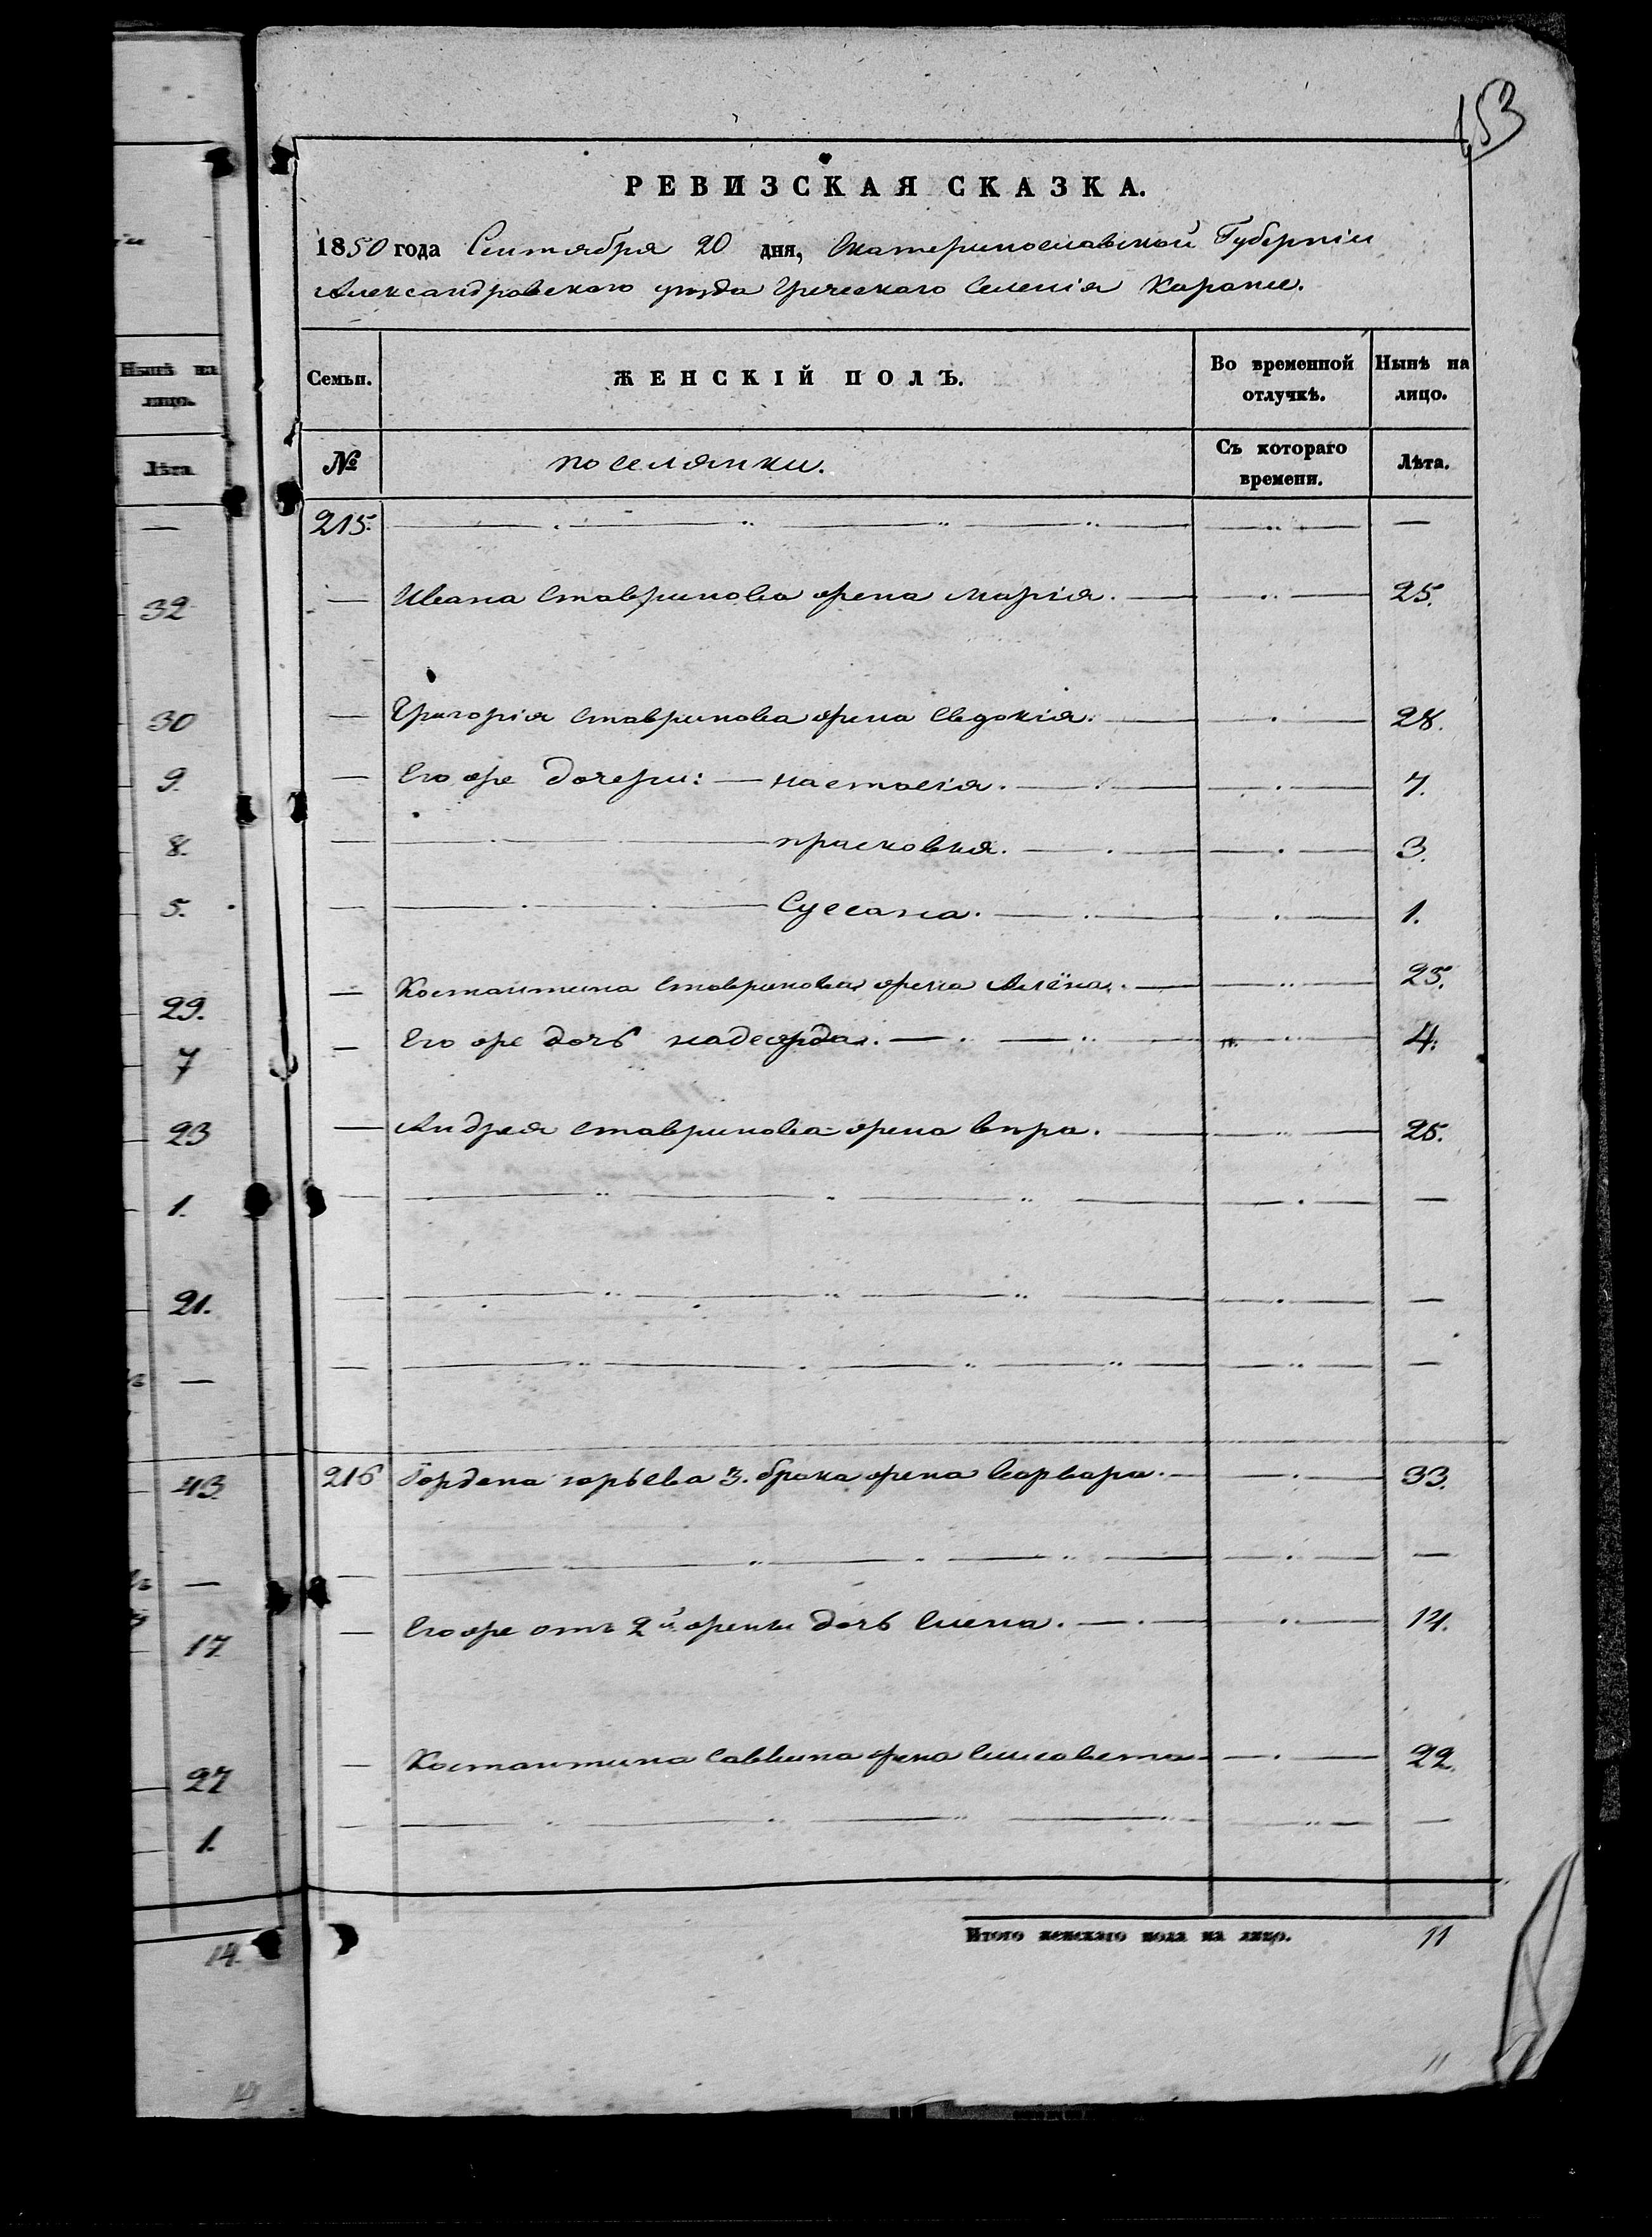 153
РЕВИЗСКАЯ СКАЗКА.
1850 года Сентября 20 дня, Екатеринославской Губерніи
Александровскаго уѣзда Греческаго Селенія Карани.
Нынѣ на лицо.
Семьи.
ЖЕНСКІЙ ПОЛЪ.
Во временной отлучкѣ.
Нынѣ на лицо.
Лѣта
№
поселянки.
Съ котораго времени.
Лѣта.
—
215.
—
32
— Ивана Ставринова жена Марія. — 25.
30
— Григорія Ставринова жена Евдокія. — 28.
9.
— Его же дочери: — Настасія. — 7.
8.
— Прасковия. — 3.
5.
— Сусана. — 1.
29.
— Костантина Ставринова жена Алёна. — 25.
7
— Его же дочь надежда. — 4.
23
— Андрея Ставринова жена вѣра. — 25.
1.
—
21.
—
—
—
43
216 Гордѣна юрьева 3. брака жена Варвара. — 33.
—
—
17
— Его же отъ 2й жены дочь Елена. — 14.
27
— Костантина Саввина жена Елисовета — 22.
1.
—
Итого женскаго пола на лицо. 11
14.
11